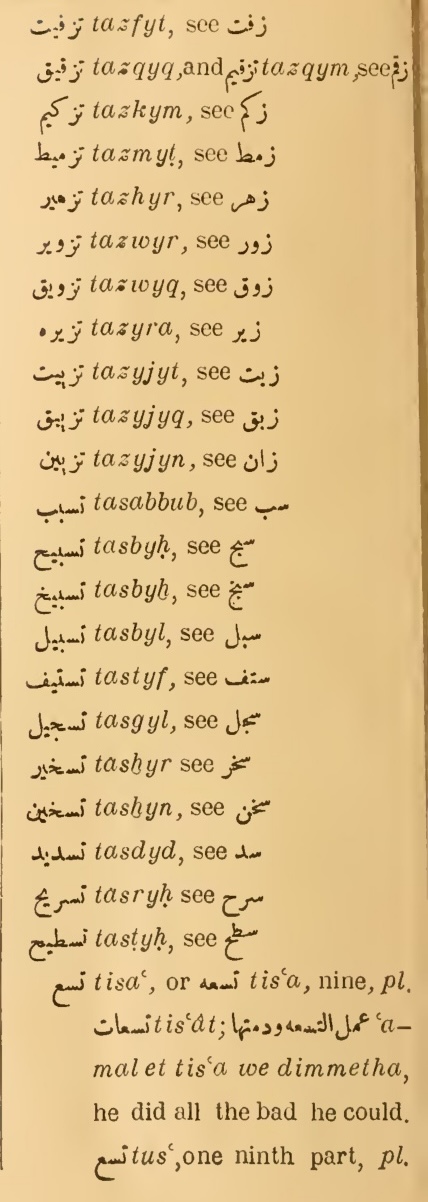 تزفيت tazfyt, see زفت
تزقيق tazqyq, and تزقيم tazqym, see زقم
تزكيم tazkym, see زكم
تزميط tazmyṭ, see زمط
تزهير tazhyr, see زهر
تزوير tazwyr, see زور
تزويق tazwyq, see زوق
تزيره tazyra, see زير
تزييت tazyjyt, see زيت
تزييق tazyjyq, see زيق
تزيين tazyjyn, see زان
تسبب tasabbub, see سب
تسبيح tasbyḥ, see سبح
تسبيخ tasbyḫ, see سبخ
تسبيل tasbyl, see سبل
تستيف tastyf, see ستف
تسجيل tasgyl, see سجل
تسخير tasḫyr see سخر
تسخين tasḫyn, see سخن
تسديد tasdyd, see سد
تسريح tasryḥ see سرح
تسطيح tasṭyḥ, see سطح
تسع tisaʿ, or تسعه tisʿa, nine, pl.
تسعات tisʿât; عمل التسعه ودمتها ʿa-
mal et tisʿa we dimmetha,
he did all the bad he could.
تسع tusʿ, one ninth part, pl.